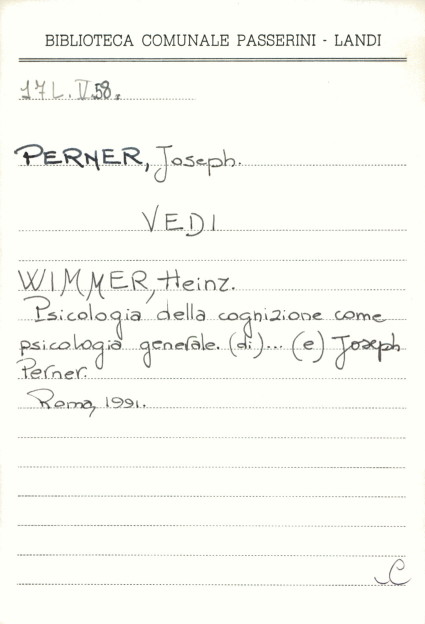 BIBLIOTECA COMUNALE PASSERINI - LANDI
17 L. V.58.
PERNER, Joseph.
VEDI
WIMMER, Heinz.
Psicologia della cognizione come
psicologia generale. (di)... (e) Joseph
Perner.
Roma, 1991.
C